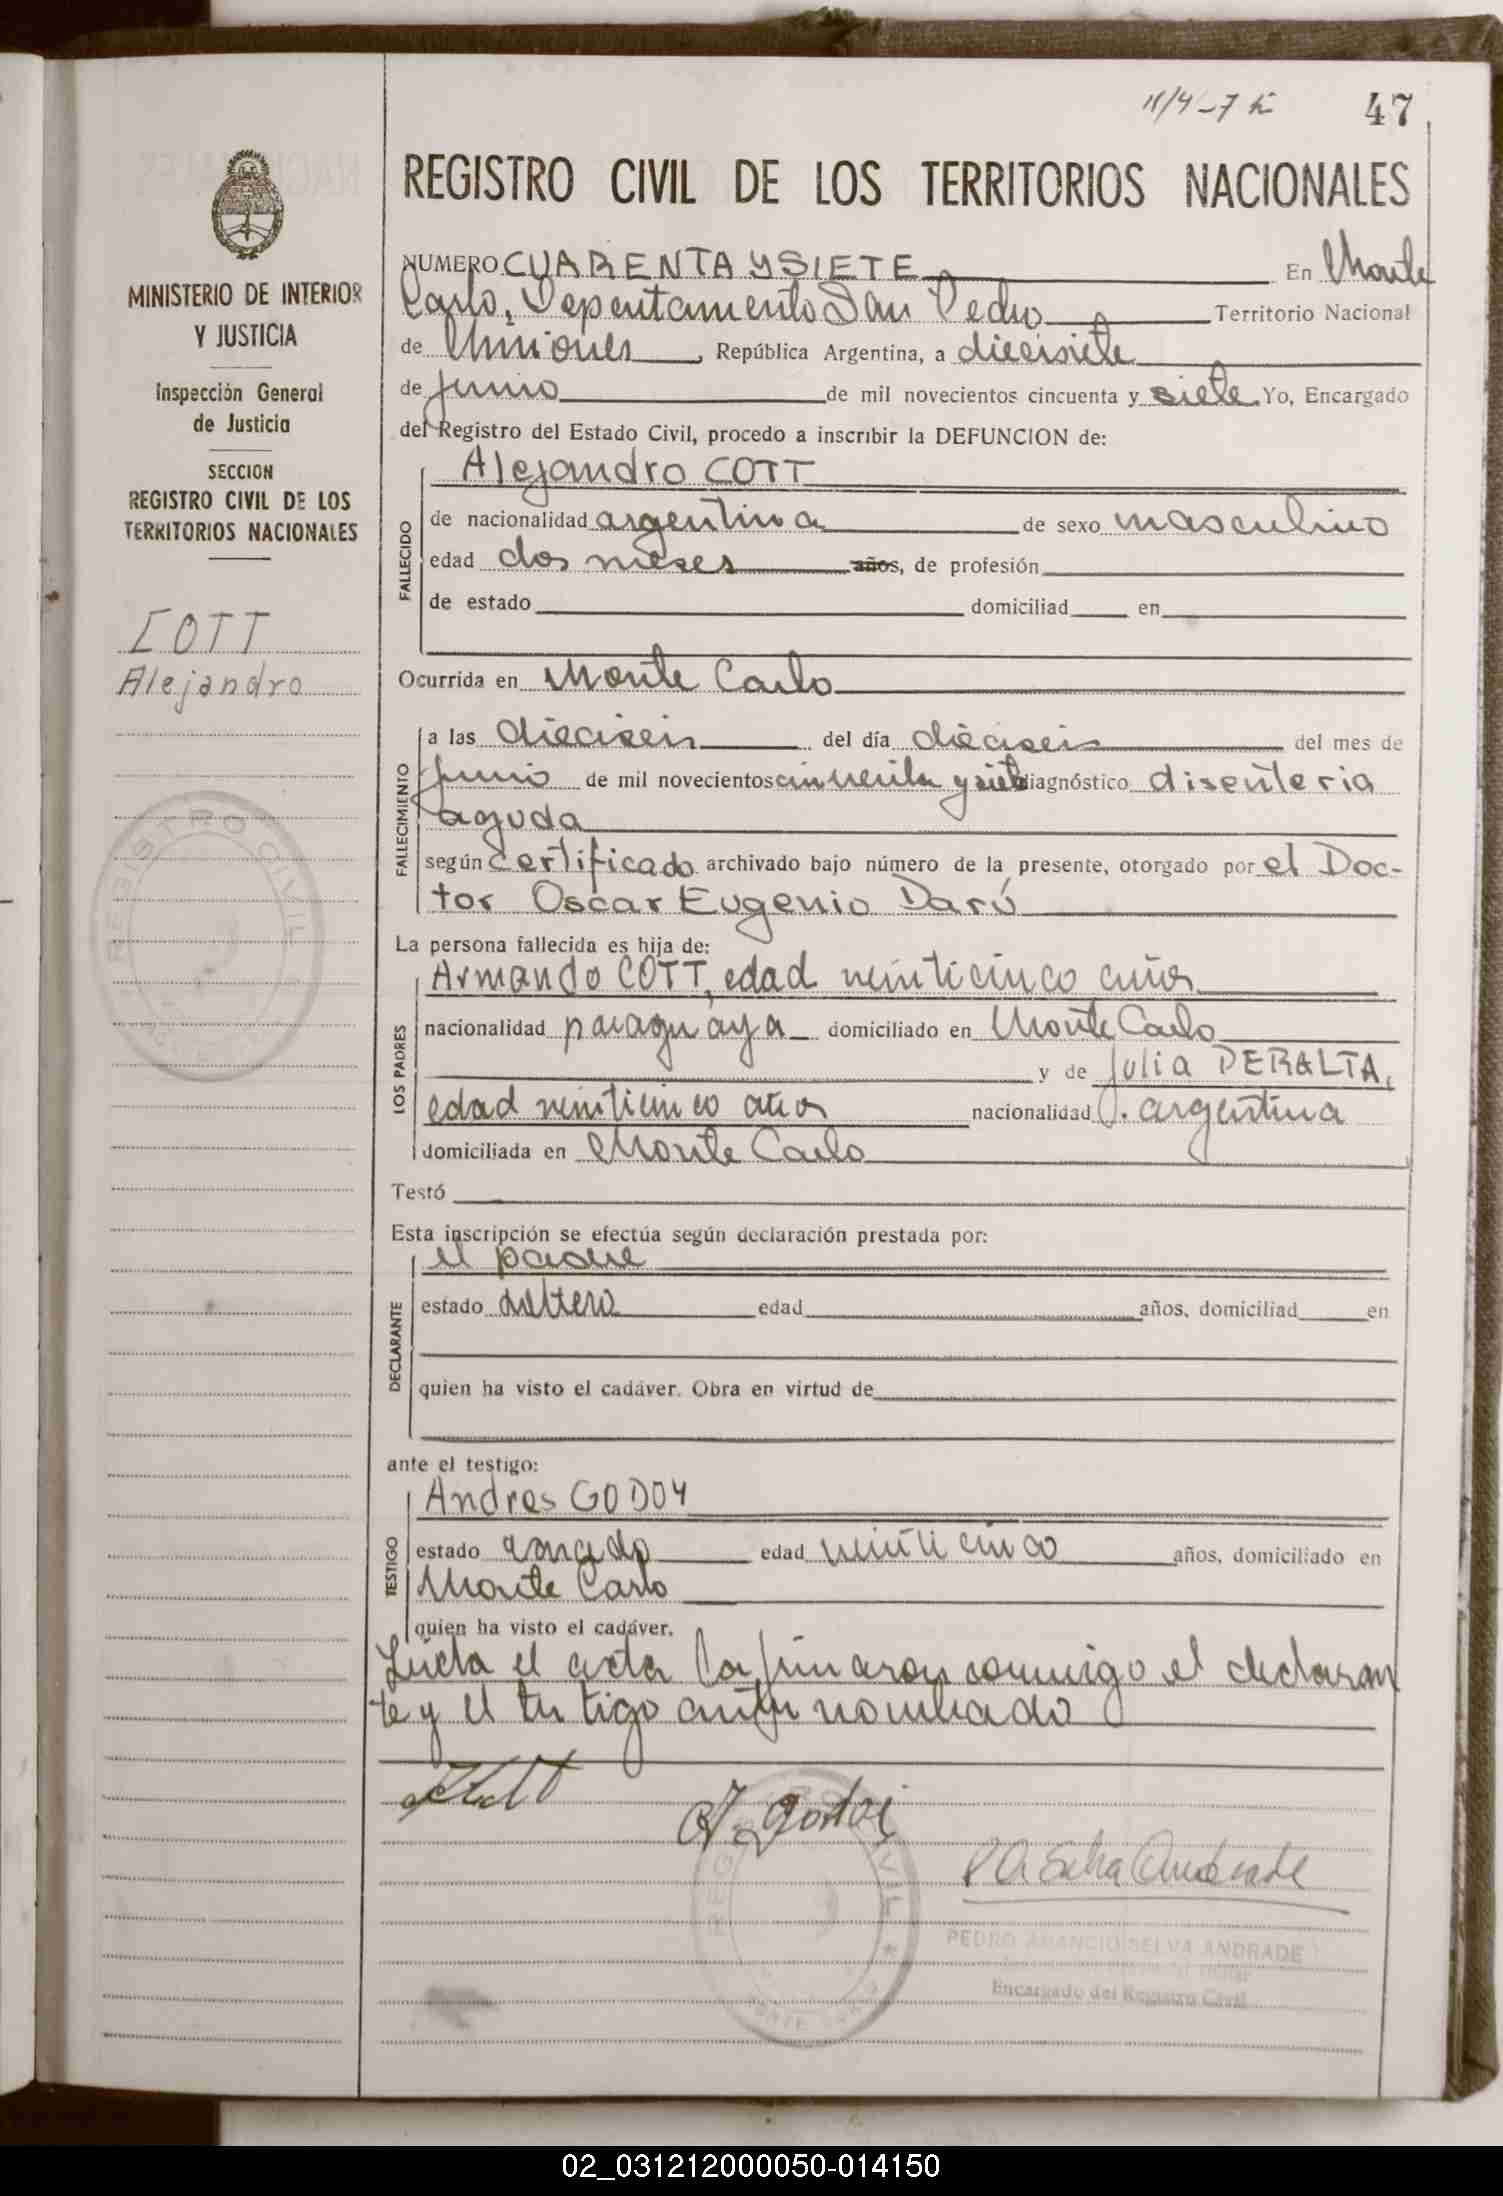 47
REGISTRO CIVIL DE LOS TERRITORIOS NACIONALES
MINISTERIO DE INTERIOR
Y JUSTICIA
Inspección General
de Justicia
SECCION
REGISTRO CIVIL DE LOS
TERRITORIOS NACIONALES
COTT
Alejandro
REGISTRO CIVIL
NUMERO CUARENTA Y SIETE En Monte
Carlo, Departamento San Pedro Territorio Nacional
de Misiones, República Argentina, a diecisiete
de junio de mil novecientos cincuenta y siete. Yo, Encargado
del Registro del Estado Civil, procedo a inscribir la DEFUNCION de:
FALLECIDO
Alejandro COTT
de nacionalidad argentina de sexo masculino
edad dos meses años, de profesión
de estado domiciliad en
Ocurrida en Monte Carlo
FALLECIMIENTO
a las dieciseis del día dieciseis del mes de
junio de mil novecientos cincuenta y siete diagnóstico disenteria
aguda
según certificado archivado bajo número de la presente, otorgado por el Doc-
tor Oscar Eugenio Darú
La persona fallecida es hija de:
LOS PADRES
Armando COTT, edad veinticinco años
nacionalidad paraguaya domiciliado en Monte Carlo
y de Julia PERALTA,
edad veinticinco años nacionalidad argentina
domiciliada en Monte Carlo
Testó
Esta inscripción se efectúa según declaración prestada por:
DECLARANTE
el padre
estado soltero edad años, domiciliad en
quien ha visto el cadáver. Obra en virtud de
ante el testigo:
TESTIGO
Andres GODOY
estado casado edad veinticinco años, domiciliado en
Monte Carlo
quien ha visto el cadáver.
Leída el acta la firmaron conmigo el declaran
te y el testigo antes nombado
A. godoi
P A Selva Andrade
PEDRO AMANCIO SELVA ANDRADE
Encargado del Registro Civil
02_031212000050-014150